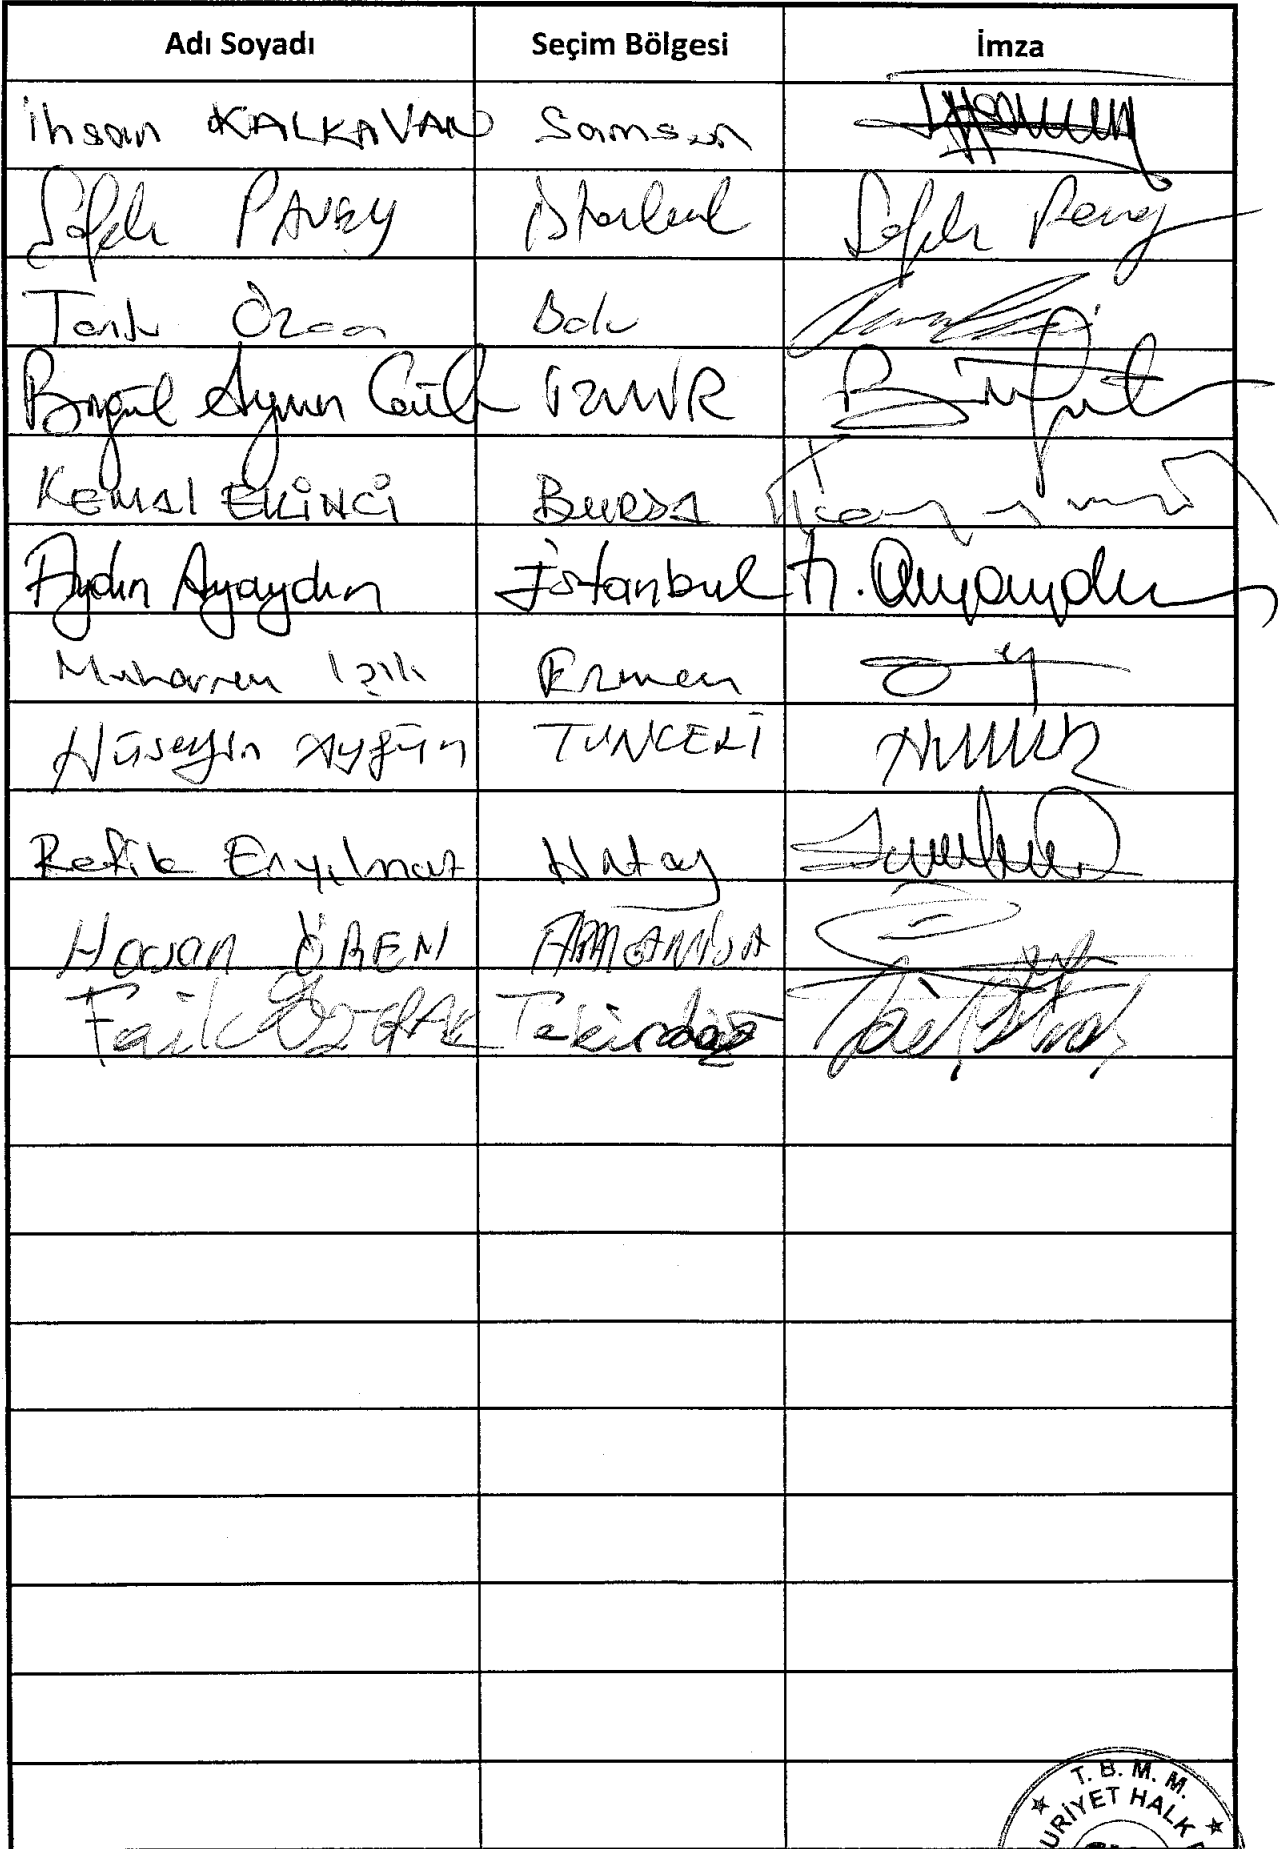 Adı Soyadı Seçim Bölgesi İmza
İhsan KALKAVAN Samsun
Şafak PAVEY İstanbul Şafak Pavey
Tanju Özcan Bolu
Birgül Ayman Güler İZMİR
KEMAL EKİNCİ BURSA
Aydın Ayaydın İstanbul A. Ayaydın
Muharrem Işık Erzincan
Hüseyin Aygün TUNCELİ
Refik Eryılmaz Hatay
Hasan ÖREN MANİSA
Faik ÖZTRAK Tekirdağ
T. B. M. M.
URİYET HALK